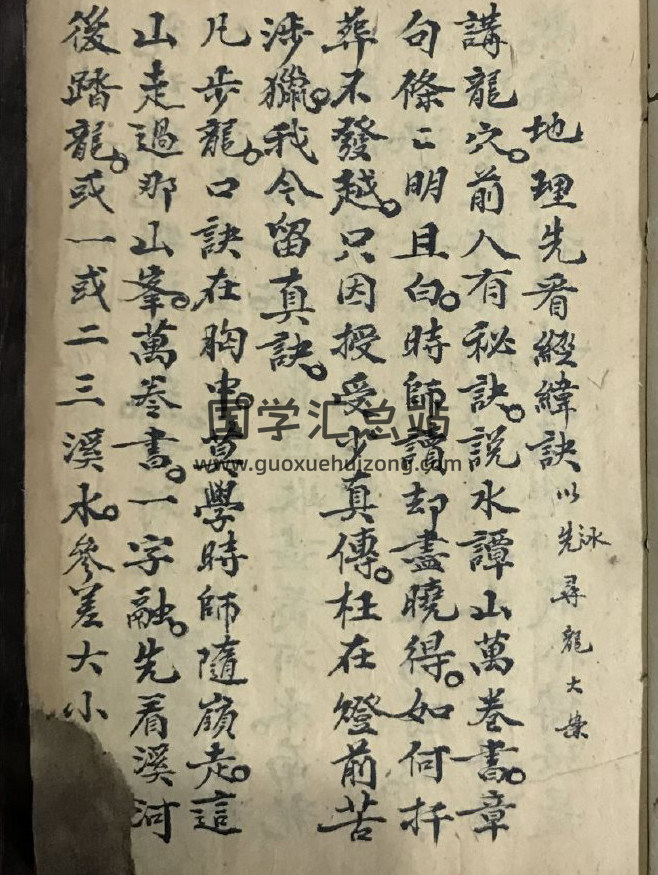 地理先看經緯訣 以先泳尋龍大葉
講龍穴。前人有秘訣。説水譚山萬卷書。章
句條〻明且白。時師讀却盡曉得。如何扦
葬不發越。只因授受少真傳。枉在燈前苦
涉獵。我今留真訣。
凡步龍。口訣在胸中。莫學時師隨嶺走。這
山走過那山峯。萬卷書。一字融。先看溪河
後踏龍。或一或二三溪水。參差大小
国学汇总站
www.guoxuehuizong.com